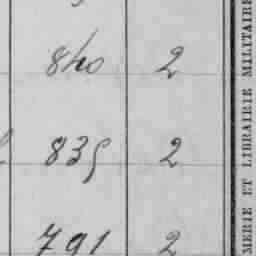 840 2
835 2
791 2
MERIE ET LIBRAIRIE MILITAIRE